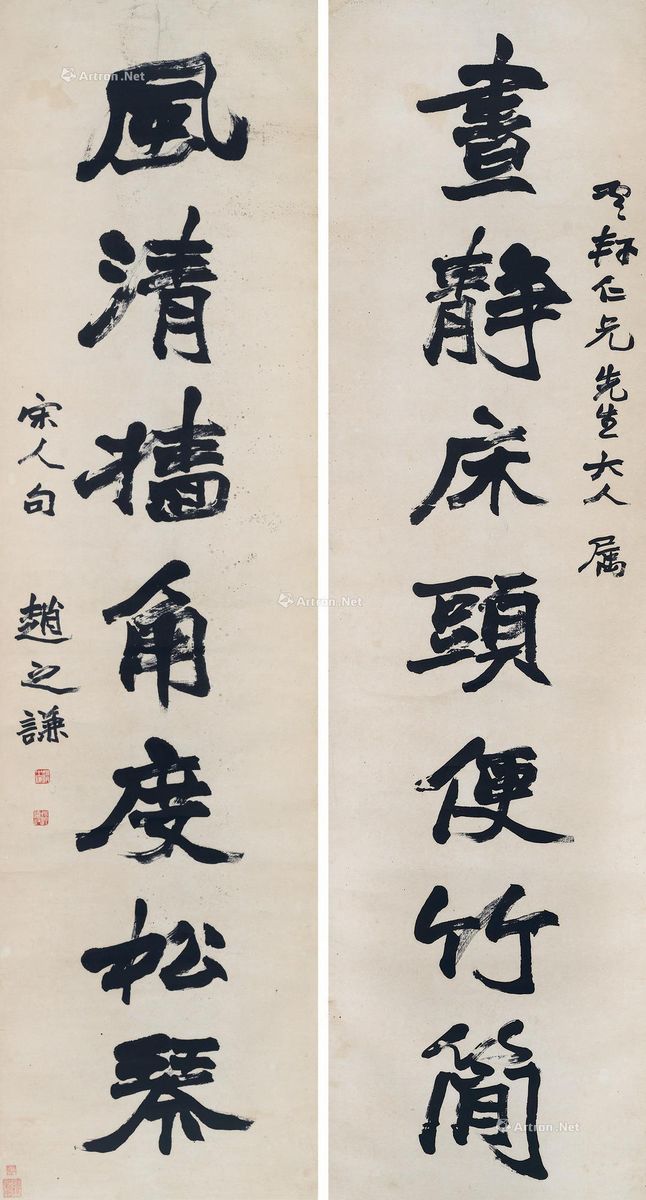 軒仁兄先生大人 属
晝靜床頭便竹簡
風清牆角度松琴
宋人句 趙之謙
Artron.Net
Artron.Net
Artron.Net
Artron.Net